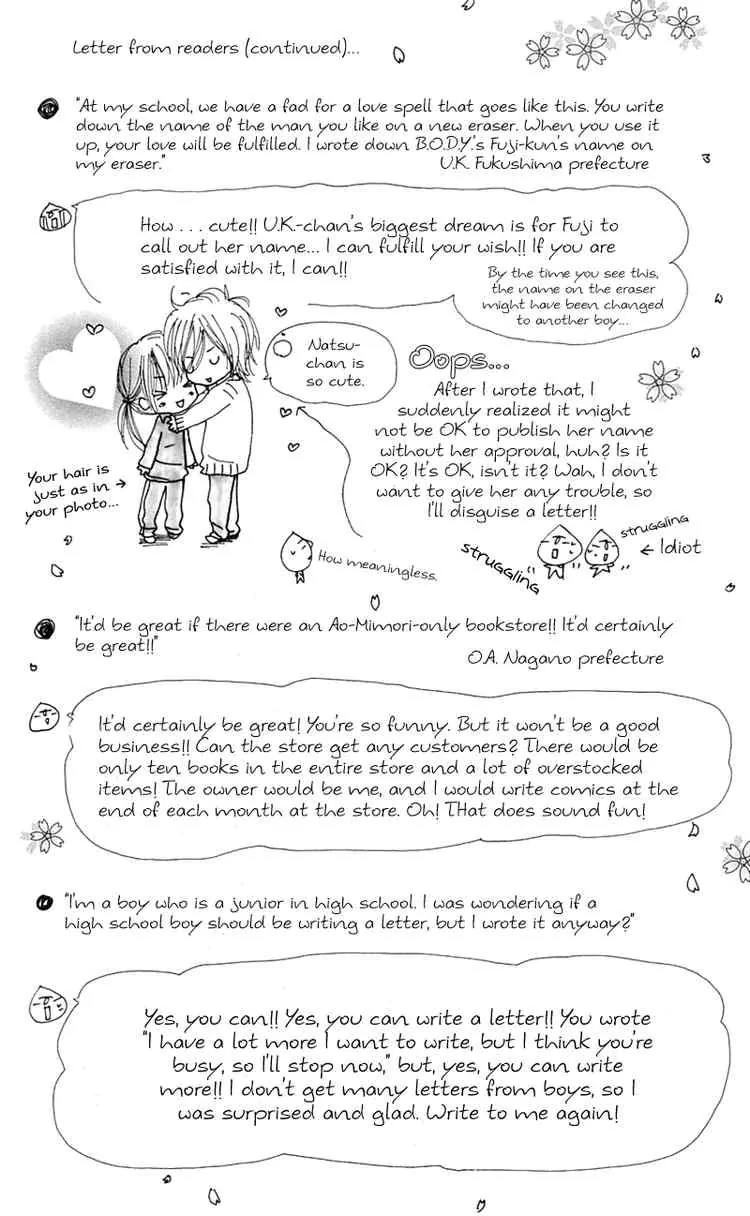 Letter from readers (continued)...
"At my school, we have a fad for a love spell that goes like this. You write
down the name of the man you like on a new eraser. When you use it
up, your love will be fulfilled. I wrote down B.O.D.Y.'s Fuji-kun's name on
my eraser."
U.K. Fukushima prefecture
How . . . cute!! U.K.-chan's biggest dream is for Fuji to
call out her name... I can fulfill your wish!! If you are
satisfied with it, I can!!
By the time you see this,
the name on the eraser
might have been changed
to another boy...
Natsu-
chan is
so cute.
Oops...
After I wrote that, I
suddenly realized it might
not be OK to publish her name
without her approval, huh? Is it
OK? It's OK, isn't it? Wah, I don't
want to give her any trouble, so
I'll disguise a letter!!
Your hair is
just as in →
your photo...
How meaningless.
struggling
struggling
← Idiot
"It'd be great if there were an Ao-Mimori-only bookstore!! It'd certainly
be great!!"
O.A. Nagano prefecture
It'd certainly be great! You're so funny. But it won't be a good
business!! Can the store get any customers? There would be
only ten books in the entire store and a lot of overstocked
items! The owner would be me, and I would write comics at the
end of each month at the store. Oh! THat does sound fun!
"I'm a boy who is a junior in high school. I was wondering if a
high school boy should be writing a letter, but I wrote it anyway?"
Yes, you can!! Yes, you can write a letter!! You wrote
"I have a lot more I want to write, but I think you're
busy, so I'll stop now," but, yes, you can write
more!! I don't get many letters from boys, so I
was surprised and glad. Write to me again!